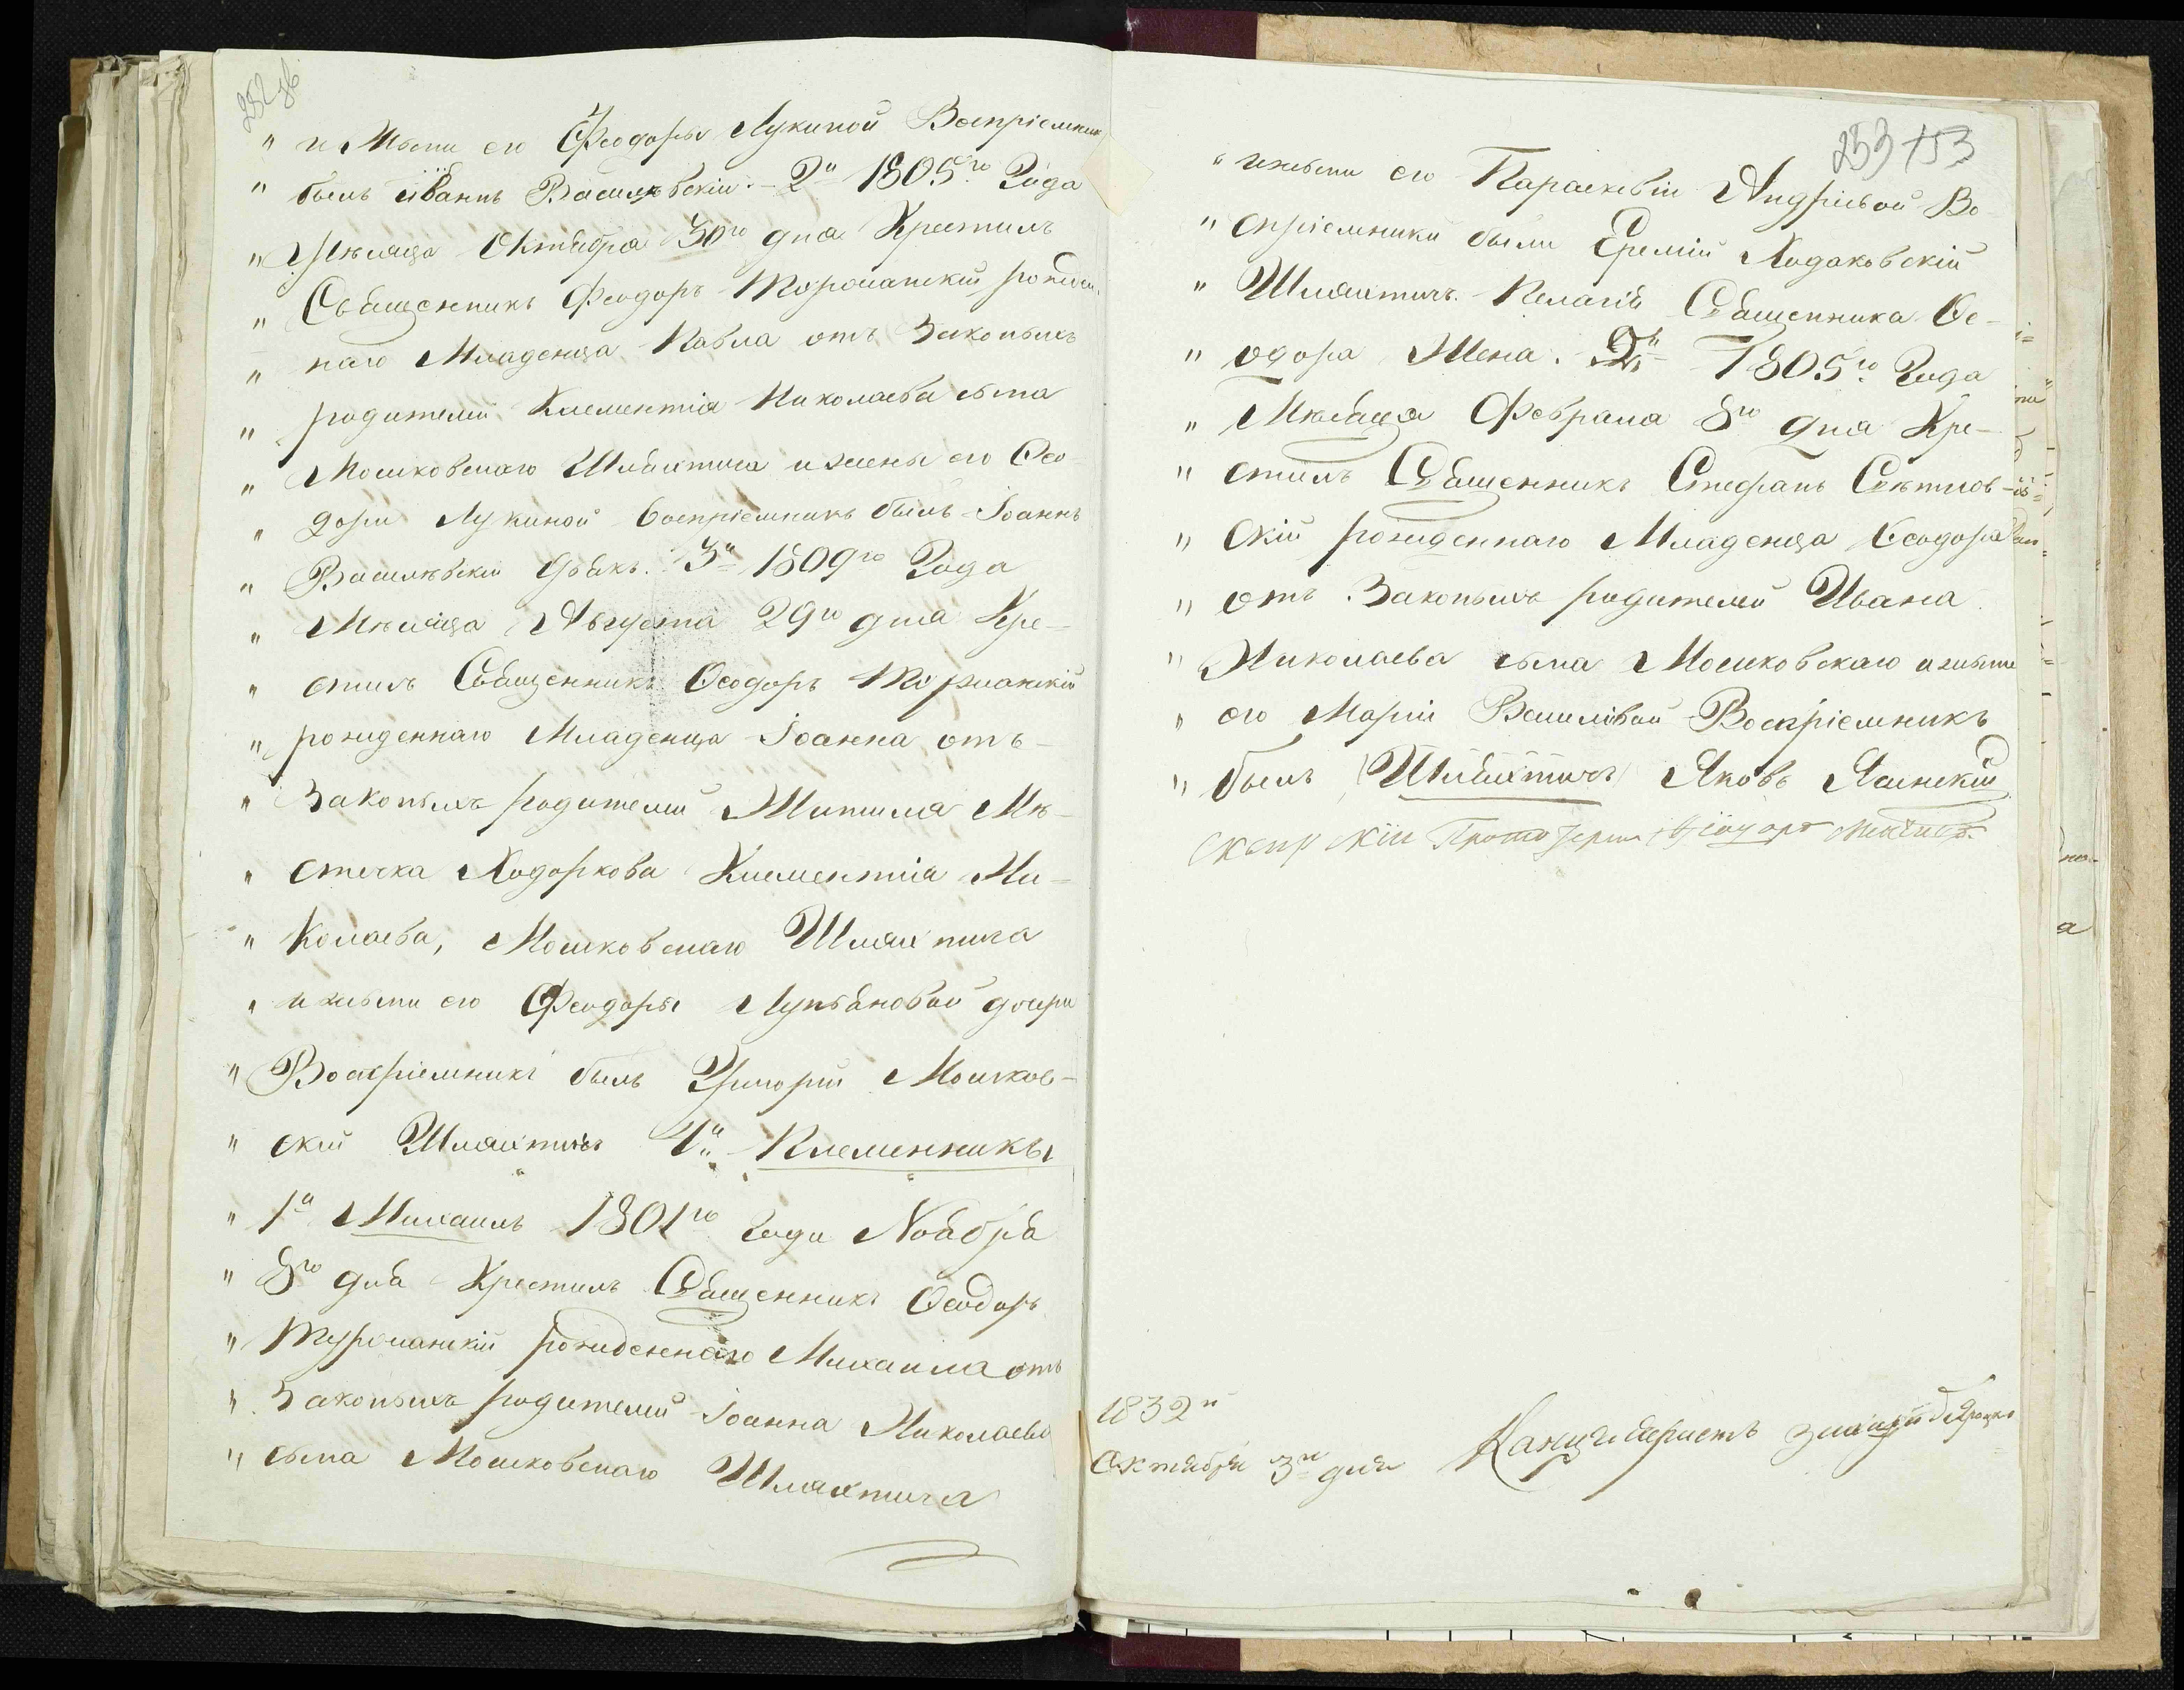 252 об
" и жены его Феодоры Лукиной Воспріемник
" былъ Иваннъ Василѣвскій. 2й 1805го Года
" Мѣсяца Октября 30го дня Крестилъ
" Священникъ Феодоръ рожден-
" наго Младенца Павла отъ Законыхъ
" родителей Климентія Николаева сына
" Мошковскаго Шляхтича и жены его Ѳео
" доры Лукиной воспріемникъ былъ Іоаннъ
" Василѣвскій Дьякъ. 3й 1809го Года
" Мѣсяца Августа 29го дня Кре-
" стилъ Священникъ Ѳеодоръ
" рожденнаго Младенца Іоанна отъ
" Законыхъ родителей Жителя Мѣ-
" стечка Ходоркова Климентія Ни-
" колаева, Мошковскаго Шляхтича
" и жены его Феодоры Лукьяновой дочери
" Воспріемникъ былъ Григорій Мошков-
" скій Шляхтичъ 4й. Племенники
" 1й Михаилъ 1801го Года Ноября
" 8го дня Крестилъ Священникъ Ѳеодоръ
" рожденнаго Михаила отъ
" Законыхъ родителей Іоанна Николаева
" сына Мошковскаго Шляхтича
253 153
" и жены его Параскевіи Андріевой Во
" спріемники были Еремій Ходаковскій
" Шляхтичъ. Пелагія Священника Ѳе-
" одора Жена. 2й 1805го Года
" Мѣсяца Февраля 8го дня Кре-
" стилъ Священникъ Стефанъ Свѣтлов-
" скій рожденнаго Младенца Ѳеодора
" отъ Законыхъ родителей Ивана
" Николаева сына Мошковскаго и жены
" его Маріи Василівой Воспріемникъ
" былъ Шляхтичъ Яковъ Ясинскій
1832й
Октября 3й дня Канцеляристъ